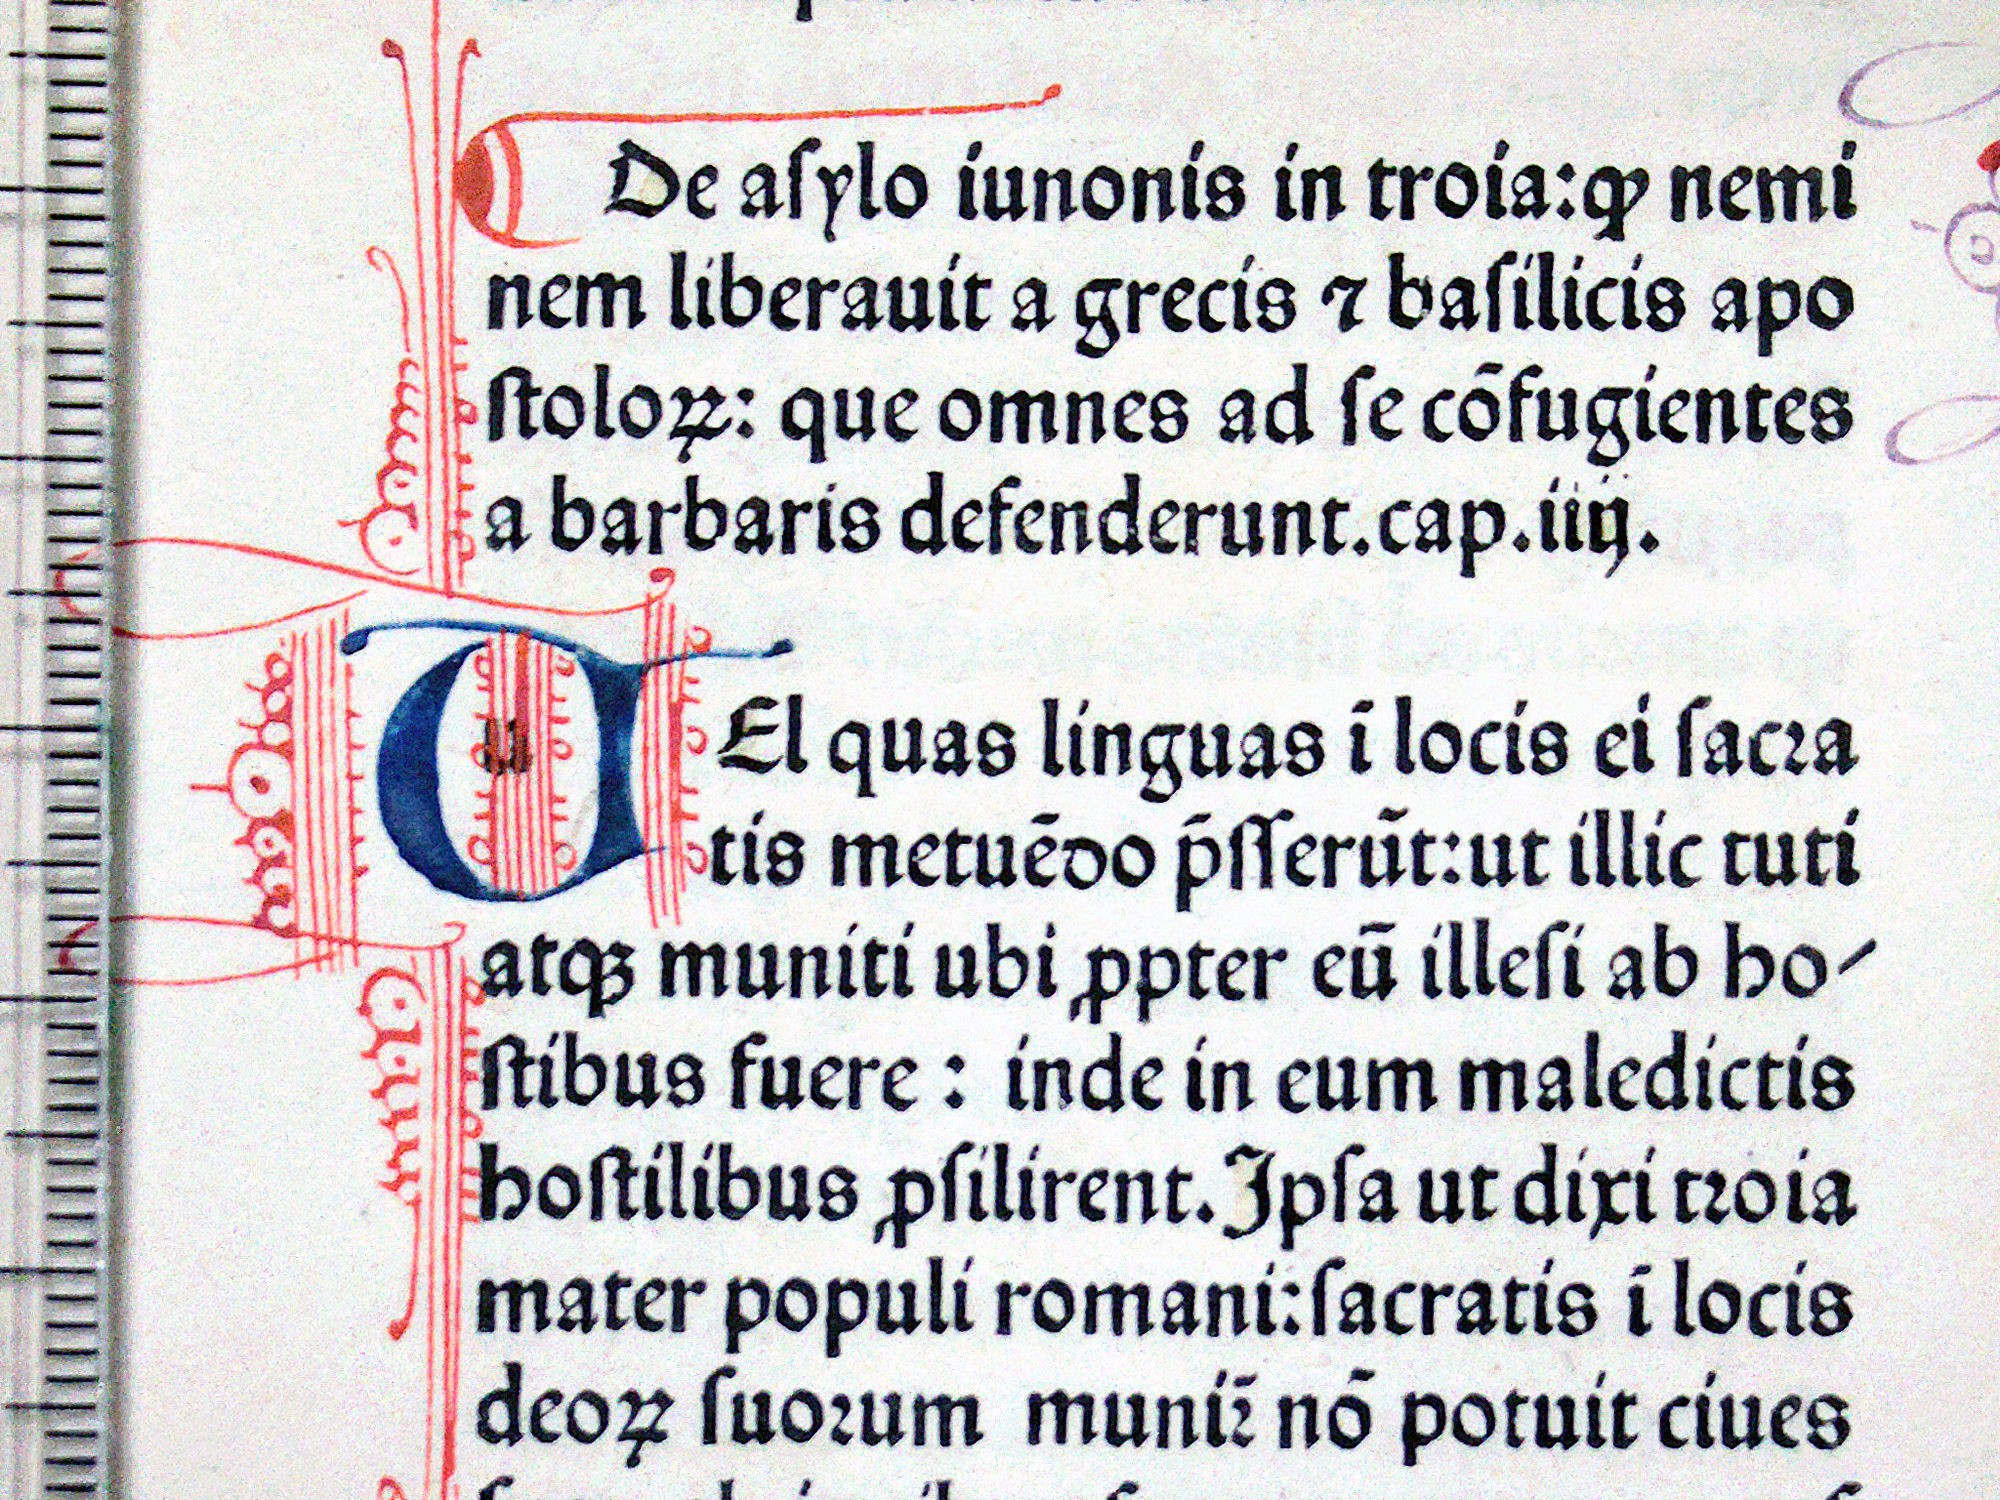 De aſylo iunonis in troia:ꝙ nemi
nem liberauit a grecis ⁊ baſilicis apo
ſtoloꝝ: que omnes ad ſe cōfugientes
a barbaris defenderunt.cap.iiij.
UEl quas linguas ī locis ei ſacꝛa
tis metuēdo p̄ſſerūt:ut illic tuti
atqꝫ muniti ubi ꝓpter eū illeſi ab ho⸗
ſtibus fuere : inde in eum maledictis
hoſtilibus ꝓſilirent. Ipſa ut dixi tꝛoia
mater populi romani:ſacratis ī locis
deoꝝ ſuoꝛum munir̄ nō potuit ciues